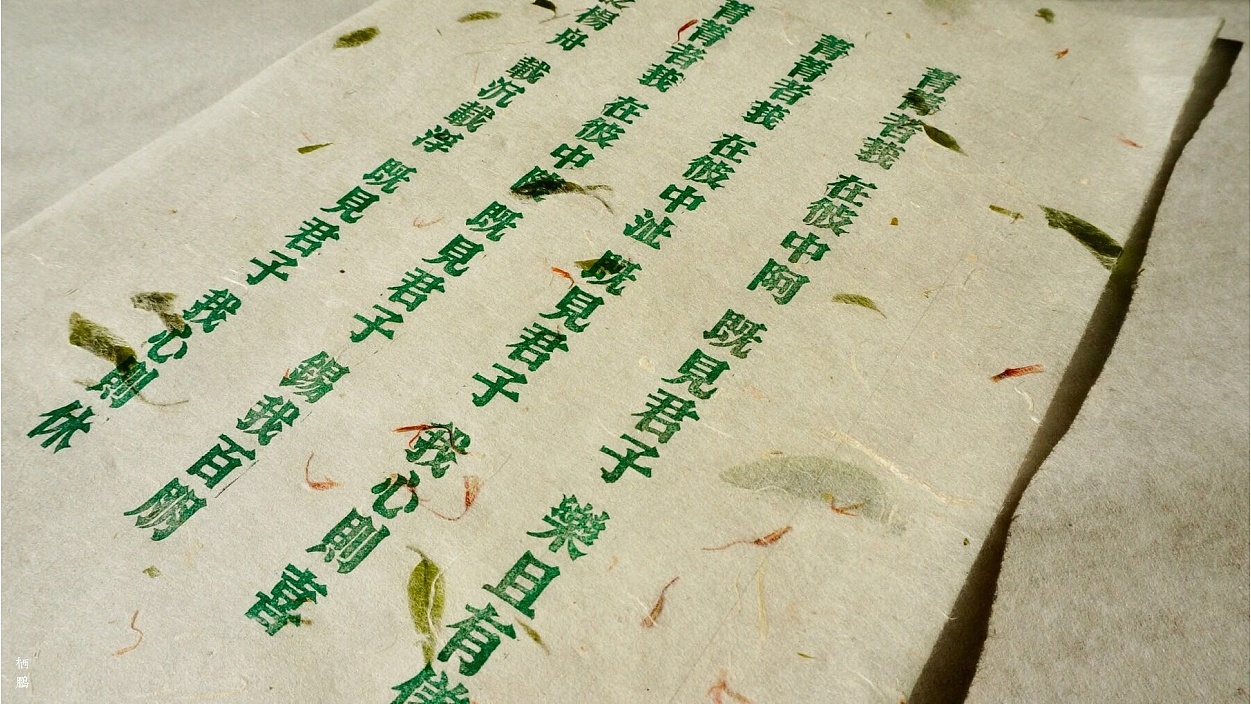 菁菁者莪 在彼中阿 既見君子 樂且有儀
菁菁者莪 在彼中沚 既見君子 我心則喜
菁菁者莪 在彼中陵 既見君子 錫我百朋
楊舟 載沉載浮 既見君子 我心則休
栖鹏